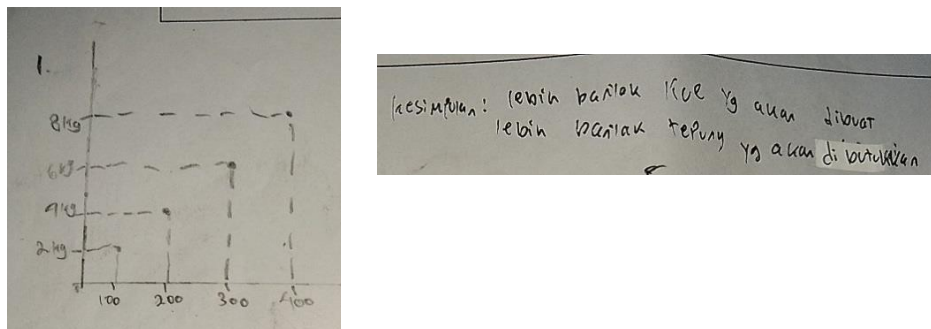 1.
8 kg
6 kg
4 kg
2 kg
100 200 300 400
Kesimpulan: lebih banyak kue yg akan dibuat
lebih banyak tepung yg akan dibutuhkan